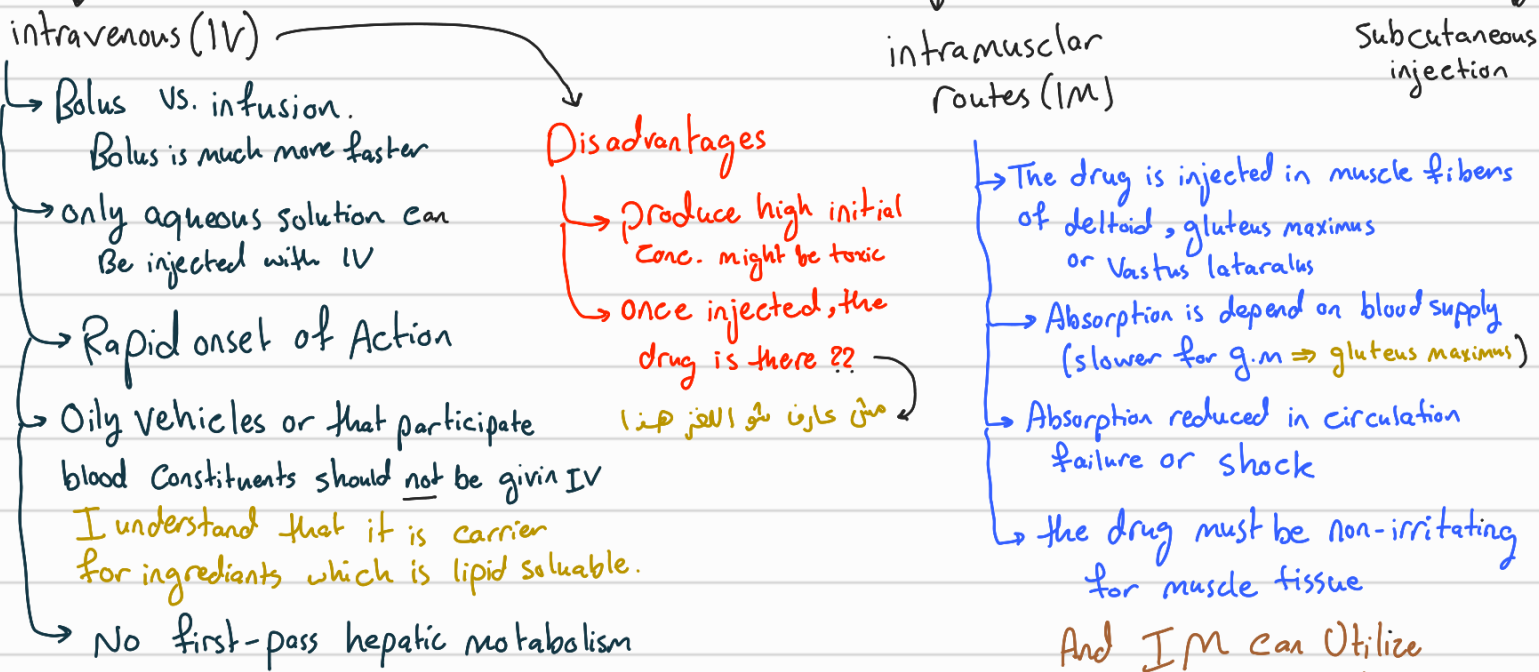 intravenous (IV)
Bolus vs. infusion.
Bolus is much more faster
only aqueous solution can
Be injected with IV
Rapid onset of Action
Oily vehicles or that participate
blood Constituents should not be givin IV
I understand that it is carrier
for ingrediants which is lipid soluable.
No first-pass hepatic motabolism
Disadvantages
produce high initial
Conc. might be toxic
once injected, the
drug is there ??
مش عارف شو اللغز هذا
intramusclar
routes (IM)
The drug is injected in muscle fibers
of deltoid, gluteus maximus
or Vastus lataralus
Absorption is depend on blood supply
(slower for g.m ⇒ gluteus maximus)
Absorption reduced in circulation
failure or shock
the drug must be non-irritating
for muscle tissue
And IM can Utilize
Subcutaneous
injection